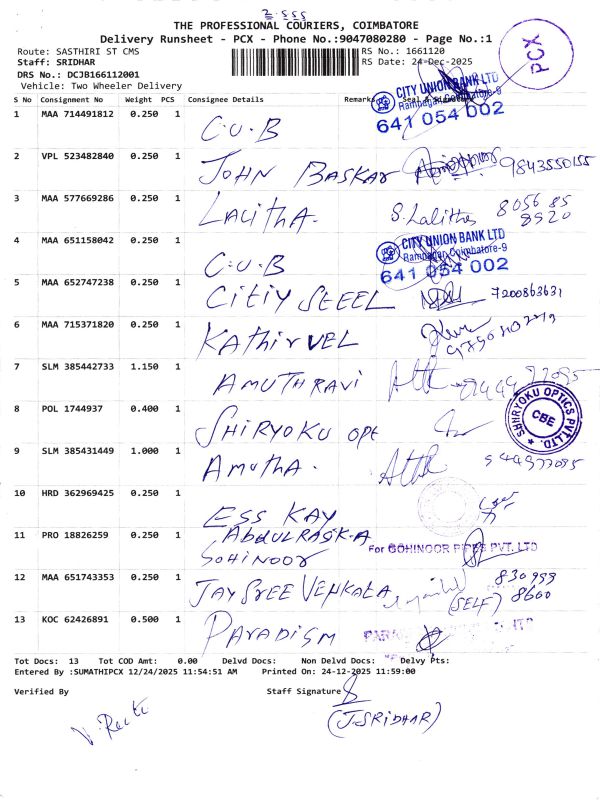 2.555
THE PROFESSIONAL COURIERS, COIMBATORE
Delivery Runsheet - PCX - Phone No.:9047080280 - Page No.:1
Route: SASTHIRI ST CMS
RS No.: 1661120
Staff: SRIDHAR
RS Date: 24-Dec-2025
DRS No.: DCJB166112001
Vehicle: Two Wheeler Delivery
PCX
S No Consignment No Weight PCS Consignee Details Remarks Seal &
1 MAA 714491812 0.250 1 C.U.B
CITY UNION BANK LTD
Ramnagar, Coimbatore-9
641 054 002
2 VPL 523482840 0.250 1 JOHN BASKAR 9843550155
3 MAA 577669286 0.250 1 LALITHA. S. Lalitha 80568 85
8520
4 MAA 651158042 0.250 1 C.U.B
CITY UNION BANK LTD
Ramnagar, Coimbatore-9
641 054 002
5 MAA 652747238 0.250 1 CITIY STEEL 7200863631
6 MAA 715371820 0.250 1 KAthirVEL
7 SLM 385442733 1.150 1 AMUTHRAVI
8 POL 1744937 0.400 1 SHIRYOKU OPt
SHIRYOKU OPTICS PVT.LTD.
CBE
9 SLM 385431449 1.000 1 AmuthA.
10 HRD 362969425 0.250 1 ESS KAY
11 PRO 18826259 0.250 1 AbdULRASK-A
SOHINOOR
For GOHINOOR PIPES PVT. LTD
12 MAA 651743353 0.250 1 JAY SREE VENKATA 830 999
(SELF) 8600
13 KOC 62426891 0.500 1 PARADISM
Tot Docs: 13 Tot COD Amt: 0.00 Delvd Docs: Non Delvd Docs: Delvy Pts:
Entered By :SUMATHIPCX 12/24/2025 11:54:51 AM Printed On: 24-12-2025 11:59:00
Verified By Staff Signature
(J.SRIDHAR)